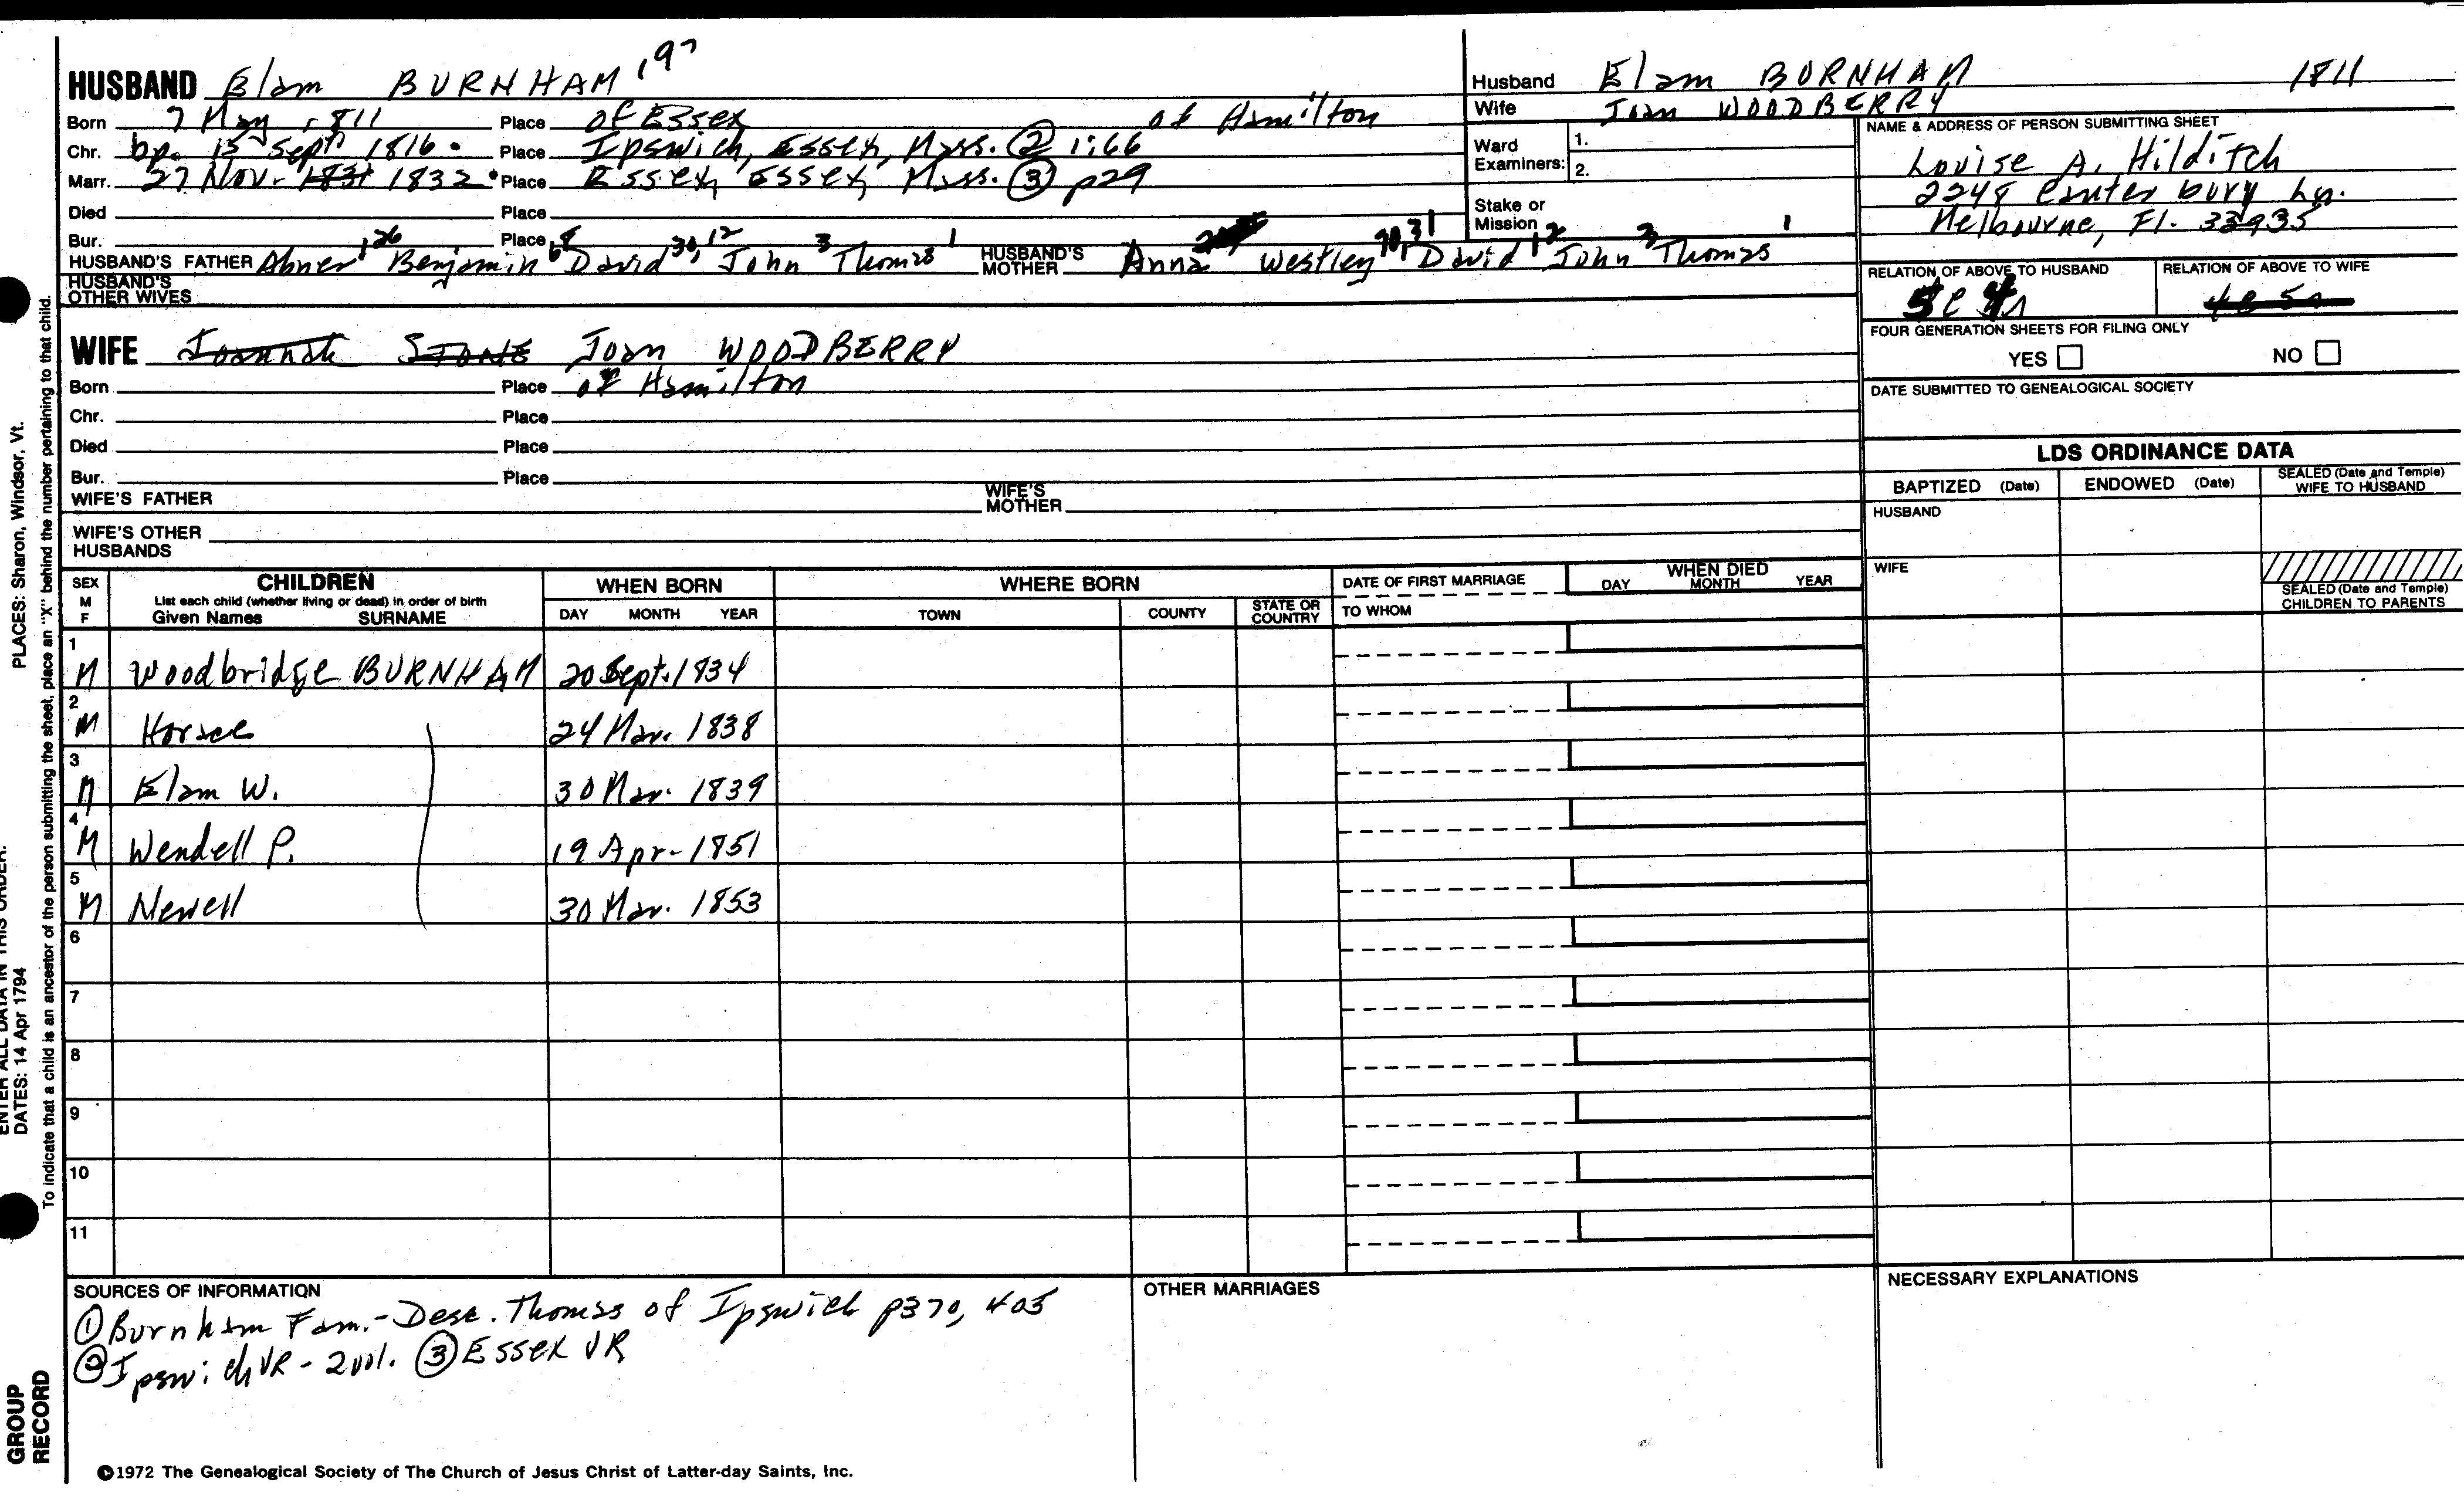 HUSBAND Elam BURNHAM 197
Born 7 May 1811 Place of Essex of Hamilton
Chr. bp. 15 Sept 1816 Place Ipswich, Essex, Mass. ② 1:66
Marr. 27 Nov. 1831 1832 Place Essex, Essex, Mass. ③ p29
Died Place
Bur. Place
HUSBAND'S FATHER Abner 126 Benjamin 68 David 30, 12 John 3 Thomas 1 HUSBAND'S MOTHER Anna Westley David 12 John 3 Thomas 1
HUSBAND'S OTHER WIVES
WIFE Joannah STONE Joan WOODBERRY
Born Place of Hamilton
Chr. Place
Died Place
Bur. Place
WIFE'S FATHER WIFE'S MOTHER
WIFE'S OTHER HUSBANDS
Husband Elam BURNHAM 1811
Wife Joan WOODBERRY
Ward Examiners: 1.
2.
Stake or Mission
NAME & ADDRESS OF PERSON SUBMITTING SHEET
Louise A. Hilditch
2248 Canterbury Ln.
Melbourne, Fl. 32935
RELATION OF ABOVE TO HUSBAND RELATION OF ABOVE TO WIFE
FOUR GENERATION SHEETS FOR FILING ONLY
YES NO
DATE SUBMITTED TO GENEALOGICAL SOCIETY
LDS ORDINANCE DATA
BAPTIZED (Date) ENDOWED (Date) SEALED (Date and Temple) WIFE TO HUSBAND
HUSBAND
WIFE
SEALED (Date and Temple) CHILDREN TO PARENTS
SEX M F CHILDREN WHEN BORN WHERE BORN DATE OF FIRST MARRIAGE WHEN DIED
List each child (whether living or dead) in order of birth
Given Names SURNAME DAY MONTH YEAR TOWN COUNTY STATE OR COUNTRY TO WHOM DAY MONTH YEAR
1 M Woodbridge BURNHAM 20 Sept. 1834
2 M Horace 24 Mar. 1838
3 M Elam W. 30 Mar. 1839
4 M Wendell P. 19 Apr. 1851
5 M Newell 30 Mar. 1853
6
7
8
9
10
11
SOURCES OF INFORMATION
① Burnham Fam. - Desc. Thomas of Ipswich p370, 405
② Ipswich VR - 2 vol. ③ Essex VR
OTHER MARRIAGES
NECESSARY EXPLANATIONS
©1972 The Genealogical Society of The Church of Jesus Christ of Latter-day Saints, Inc.
PLACES: Sharon, Windsor, Vt.
To indicate that a child is an ancestor of the person submitting the sheet, place an "X" behind the number pertaining to that child.
ENTER ALL DATA IN THIS ORDER:
DATES: 14 Apr 1794
GROUP
RECORD